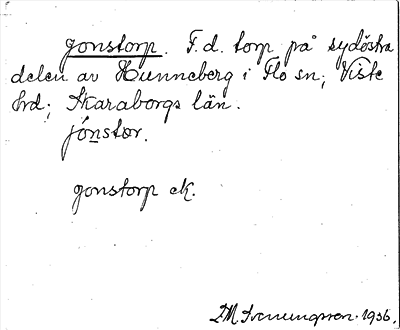 gonstorp. F. d. torp på sydöstra
delen av Hunneberg i Flo sn; Viste
hrd; Skaraborgs län.
jónstør.
gonstorp ek.
Svenungsson. 1936.